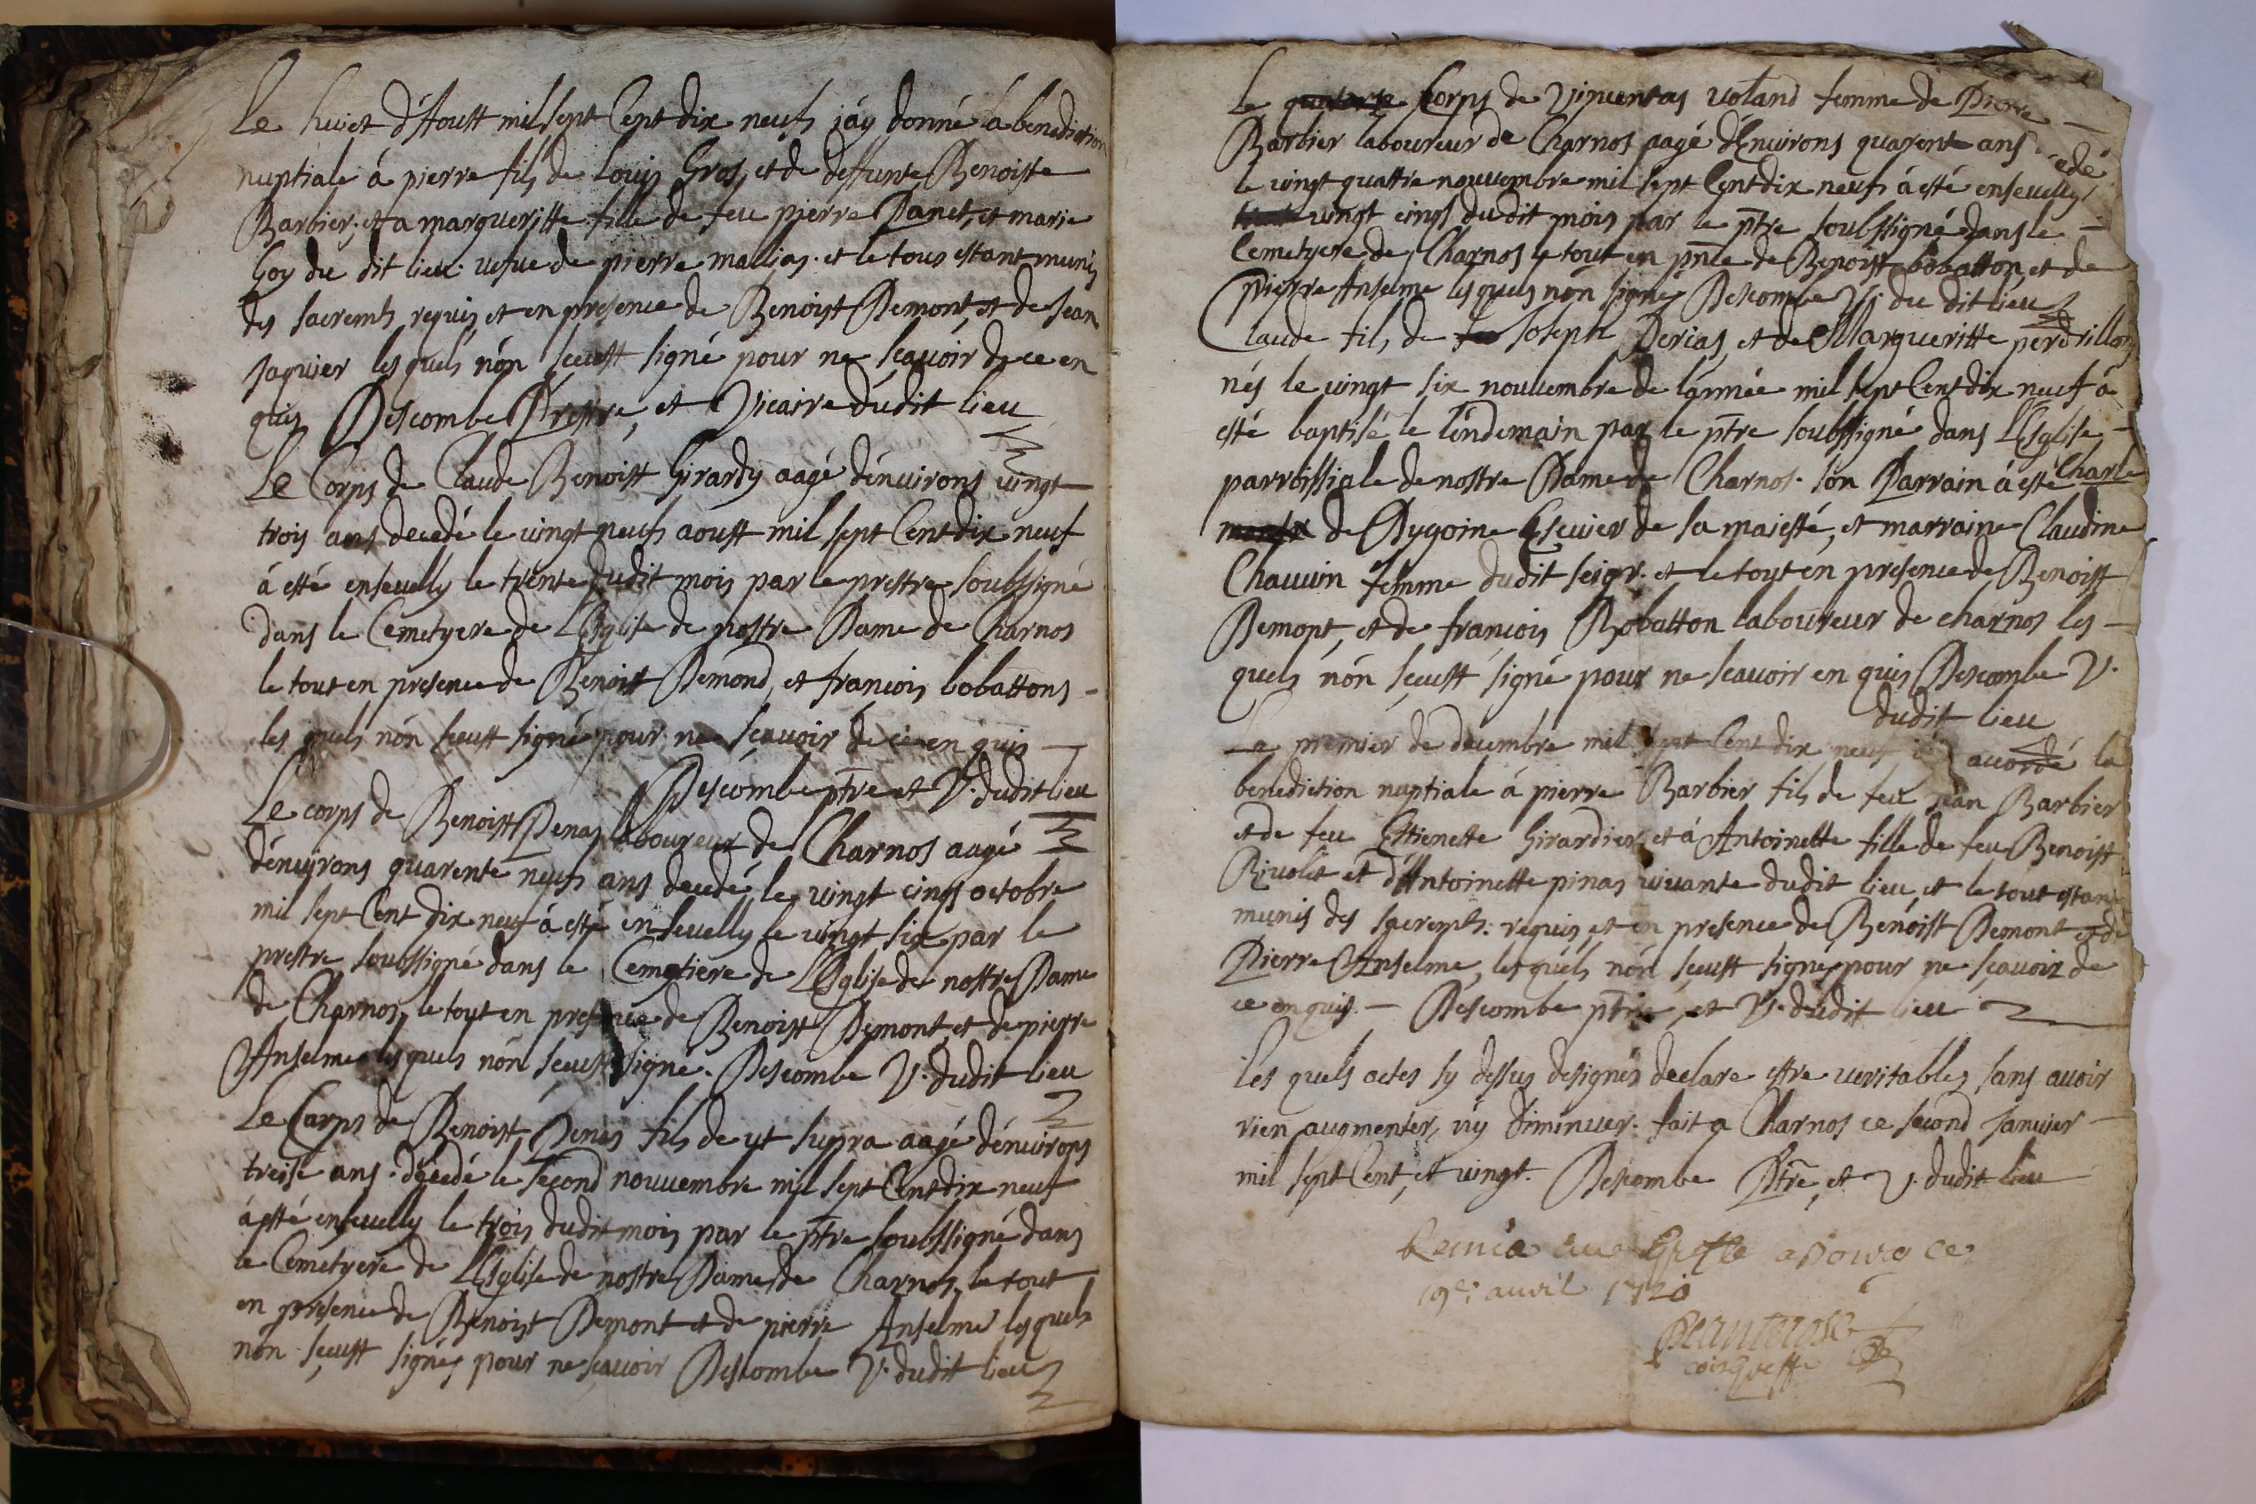 Le huict d'Aoust mil sept Cent dix neufs j'ay donné la benediction
nuptiale à pierre fils de louis Gros, et de deffunte Benoiste
Barbier, et a margueritte fille de feu pierre Panet, et marie
Goy du dit lieu vefue de pierre mallias et le tous estant munis
des sacremts requis et en presence de Benoist Demont, et de Jean
Jaquier les quels nón sceust signé pour ne sçauoir de ce en
quis Descombe Prestre, et Vicaire dudit lieu
Le Corps de Claude Benoist Girardy aagé dénuirons vingt
trois ans decedé le vingt neufs aoust mil sept Cent dix neuf
à esté enseuelly le trente dudit mois par le prestre soubssigné
dans le Cemetyere de L'Eglise de nostre Dame de Charnos
le tout en presence de Benoist Demond, et francois bobattons
les quels nón sceust signé pour ne sçauoir de ce en quis
Descombe ptre et V. dudit lieu
Le corps de Benoist Penas laboureur de Charnos aagé
dénuirons quarente neufs ans decedé le vingt cinqs octobre
mil sept Cent dix neuf à esté enseuelly le vingt six par le
prestre soubssigné dans le Cemetiere de L'Eglise de nostre Dame
de Charnos, le tout en presence de Benoist Demont, et de pierre
Anselme les quels nón sceust signé. Descombe V. dudit lieu
Le Corps de Benoist Penas fils de ut supra aagé dénuirons
treise ans décedé le second nouuembre mil sept Cent dix neuf
à esté enseuelly le trois dudit mois par le ptre soubssigné dans
le Cemetyere de L'Eglise de nostre Dame de Charnos, le tout
en presence de Benoist Demont et de pierre Anselme lesquels
nón sceust signés pour ne sçauoir Descombe V. dudit lieu
Le Corps de Vincentas Voland femme de Pierre
Barbier laboureur de Charnos aagé d'Enuirons quarente ans edé
le vingt quattre nouuembre mil sept Cent dix neufs à esté enseuelly
vingt cinqs dudit mois par le ptre soubssigné dans le
Cemetyere de Charnos le tout en pnce de Benoist bobatton, et de
Pierre Anselme lesquels nón signés Descombe V. du dit lieu
Claude fils de Joseph Perias, et de Margueritte perdrillon
nés le vingt six nouuembre de lannée mil sept Cent dix neuf à
esté baptisé le lendemain par le ptre soubssigné dans L'Eglise
parroissiale de nostre Dame de Charnos. son Parrain à esté Charle
de Dygoine Escuier de sa majesté, et marraine Claudine
Chauuin femme dudit seigr. et le tout en presence de Benoist
Demont, et de francois Bobatton laboureur de charnos les
quels nón sceust signé pour ne scauoir en quis Descombe V.
dudit lieu
Le premier de decembre mil sept Cent dix neuf accordé la
benediction nuptiale à pierre Barbier fils de feu Jean Barbier
et de feu Estienette Girardier, et à Antoinette fille de feu Benoist
Riuolet et d'Antoinette pinas viuante dudit lieu, et le tout estant
munis des sacremts: requis, et en presence de Benoist Demont et de
Pierre Anselme, les quels nón sceust signés pour ne sçauoir de
ce en quis. Descombe ptre, et V. dudit lieu
Les quels actes sy dessus designés declare estre veritables, sans auoir
rien augmenter, ny diminuer. fait a Charnos ce second Januier
mil sept Cent, et vingt. Descombe Ptre, et V. dudit lieu
Remis au Greffe a Bourg ce
19e: auril 1720